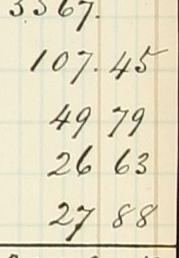 3367.
107. 45
49 79
26 63
27 88